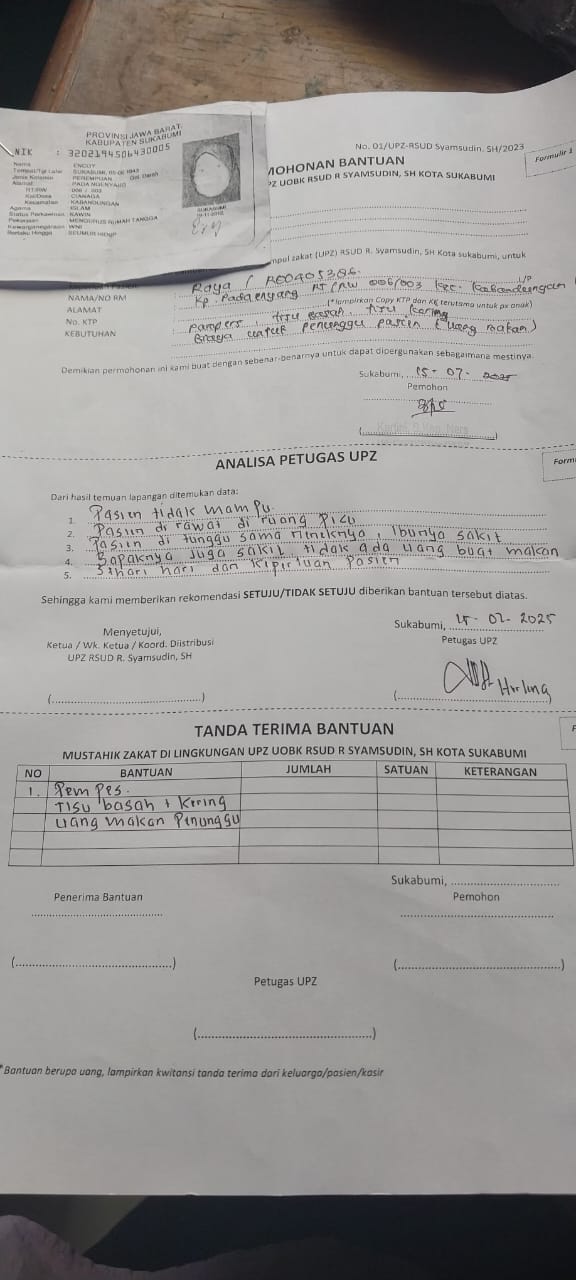 PROVINSI JAWA BARAT
KABUPATEN SUKABUMI
NIK : 3202194506430005
Nama ENCOY
Tempat/Tgl Lahir SUKABUMI, 05-06-1943
Jenis Kelamin PEREMPUAN Gol. Darah
Alamat PADA NGENYANG
RT/RW 006 / 003
Kel/Desa CIANAGA
Kecamatan KABANDUNGAN
Agama ISLAM
Status Perkawinan KAWIN
Pekerjaan MENGURUS RUMAH TANGGA
Kewarganegaraan WNI
Berlaku Hingga SEUMUR HIDUP
SUKABUMI
No. 01/UPZ-RSUD Syamsudin. SH/2023
Formulir 1
MOHONAN BANTUAN
PZ UOBK RSUD R SYAMSUDIN, SH KOTA SUKABUMI
mpul zakat (UPZ) RSUD R. Syamsudin, SH Kota sukabumi, untuk
NAMA/NO RM Raya / A00405386.
ALAMAT Kp. Padaenyang RT/RW 006/003 Kec. Kabandungan
No. KTP (*lampirkan Copy KTP dan KK terutama untuk px anak)
KEBUTUHAN Pampers, tisu basah, tisu kering
Biaya untuk penunggu pasien (uang makan)
Demikian permohonan ini kami buat dengan sebenar-benarnya untuk dapat dipergunakan sebagaimana mestinya.
Sukabumi, 15-07-2025
Pemohon
ANALISA PETUGAS UPZ
Form
Dari hasil temuan lapangan ditemukan data:
1. Pasien tidak mampu
2. Pasiin di rawat di ruang Picu
3. Pasiin di tunggu sama nineknya, Ibunya sakit
4. Bapaknya juga sakit tidak ada uang buat makan
5. Sihari hari dan Kiperluan Pasien
Sehingga kami memberikan rekomendasi SETUJU/TIDAK SETUJU diberikan bantuan tersebut diatas.
Sukabumi, 15-07-2025
Menyetujui,
Petugas UPZ
Ketua / Wk. Ketua / Koord. Diistribusi
UPZ RSUD R. Syamsudin, SH
TANDA TERIMA BANTUAN
F
MUSTAHIK ZAKAT DI LINGKUNGAN UPZ UOBK RSUD R SYAMSUDIN, SH KOTA SUKABUMI
NO BANTUAN JUMLAH SATUAN KETERANGAN
1. Pem pes.
Tisu basah + Kering
uang makan Pinunggu
Sukabumi,
Penerima Bantuan Pemohon
Petugas UPZ
*Bantuan berupa uang, lampirkan kwitansi tanda terima dari keluarga/pasien/kasir